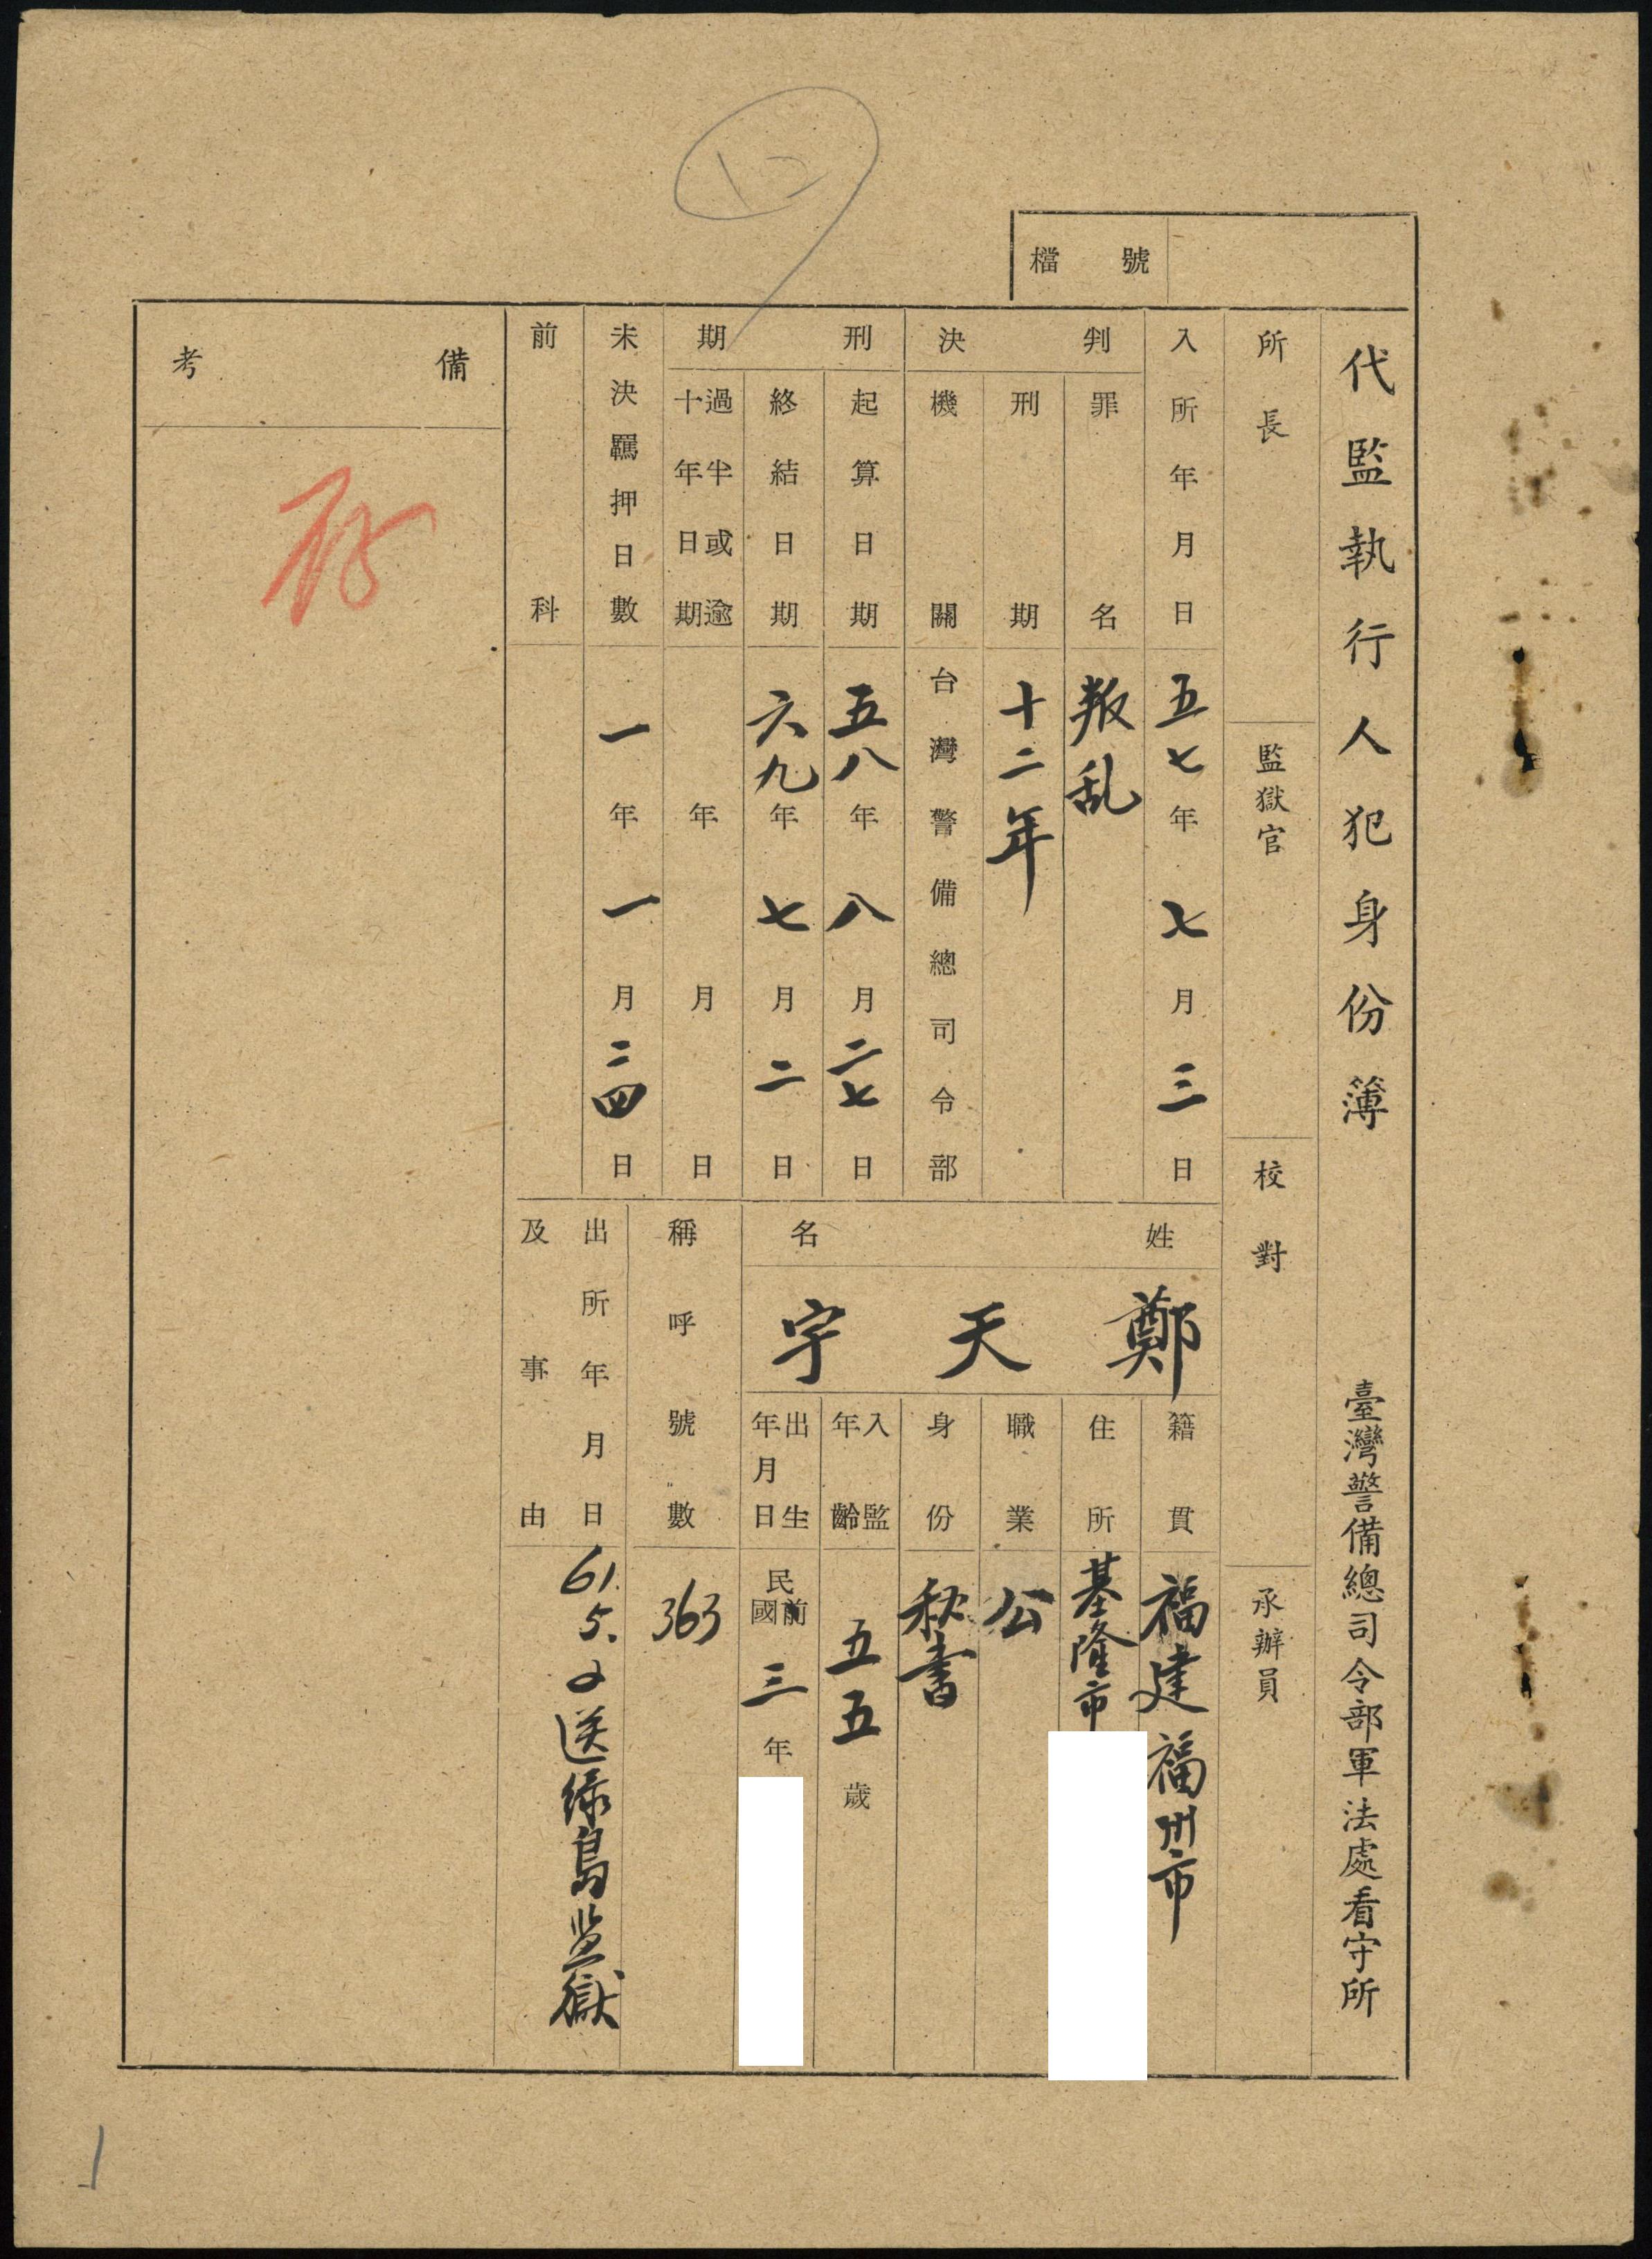 檔號
代監執行人犯身份簿　臺灣警備總司令部軍法處看守所
所長
監獄官
校對
承辦員
入所年月日 五七年七月三日
判決
罪名 叛乱
刑期 十二年
機關 台灣警備總司令部
刑期
起算日期 五八年八月二七日
終結日期 六九年七月二日
過半或逾十年日期 年 月 日
未決羈押日數 一年一月二四日
前科
姓名
鄭天宇
籍貫 福建福州市
住所 基隆市
職業 公
身份 秘書
入監年齡 五五歲
出生年月日 民國前三年
稱呼號數 363
出所年月日及事由 61.5.2送绿島监獄
備考
存